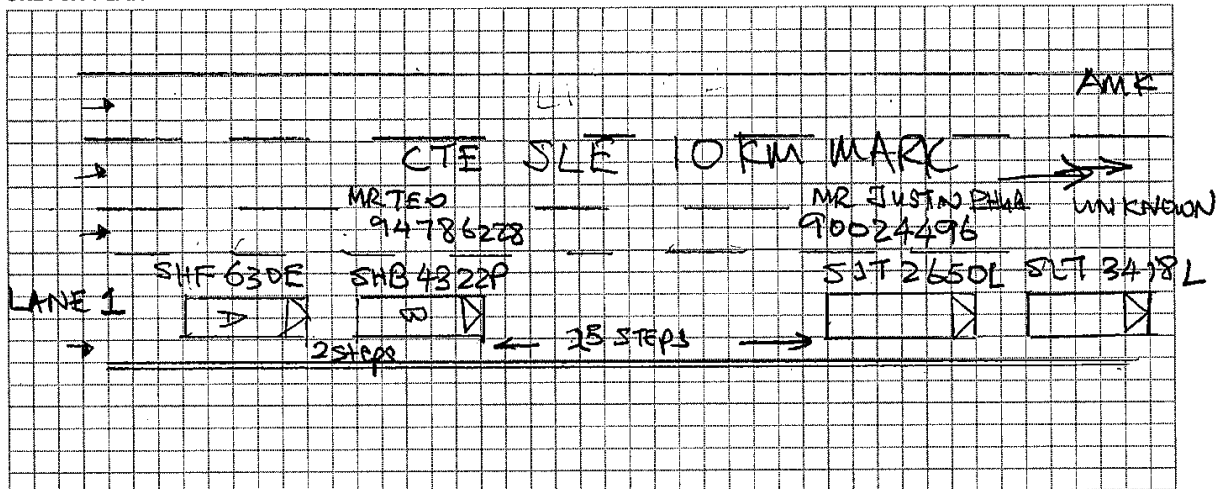 AMK
CTE SLE 10 KM MARK
MR TEO
94786228
MR JUSTIN PHUA
90024496
UNKNOWN
SHF 630E
SHB 4322P
SJT 2650L
SLT 3418L
LANE 1
A
B
2 steps
25 STEPS